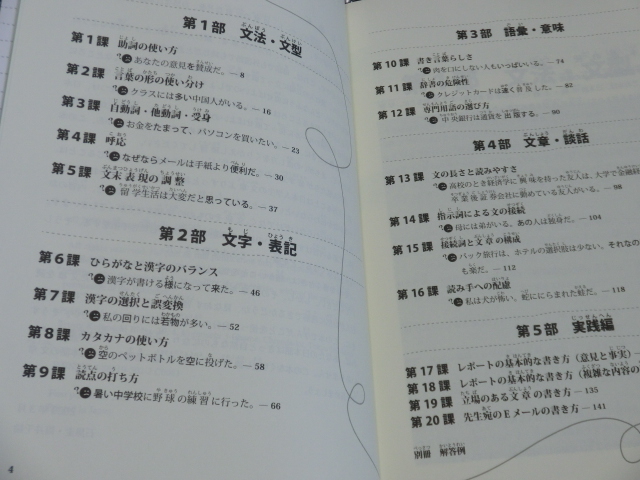 第1部 文法・文型
第1課 助詞の使い方
あなたの意見を賛成だ。— 8
第2課 言葉の形の使い分け
クラスには多い中国人がいる。— 16
第3課 自動詞・他動詞・受身
お金をたまって、パソコンを買いたい。— 23
第4課 呼応
なぜならメールは手紙より便利だ。— 30
第5課 文末表現の調整
留学生活は大変だと思っている。— 37
第2部 文字・表記
第6課 ひらがなと漢字のバランス
漢字が書ける様になって来た。— 46
第7課 漢字の選択と誤変換
私の回りには若物が多い。— 52
第8課 カタカナの使い方
空のペットボトルを空に投げた。— 58
第9課 読点の打ち方
暑い中学校に野球の練習に行った。— 66
4
第3部 語彙・意味
第10課 書き言葉らしさ
肉を口にしない人もいっぱいいる。— 74
第11課 辞書の危険性
クレジットカードは速く普及した。— 82
第12課 専門用語の選び方
中央銀行は通貨を出線する。— 90
第4部 文章・談話
第13課 文の長さと読みやすさ
高校のとき経済学に興味を持った友人は、大学で金融経
卒業後証券会社に勤めている友人がいる。— 98
第14課 指示詞による文の接続
母には弟がいる。あの人は独身だ。— 104
第15課 接続詞と文章の構成
パック旅行は、ホテルの選択肢は少ない。それなの
も楽だ。— 112
第16課 読み手への配慮
私は犬が怖い。蛇ににらまれた蛙だ。— 118
第5部 実践編
第17課 レポートの基本的な書き方（意見と事実）
第18課 レポートの基本的な書き方（複雑な内容の
第19課 立場のある文章の書き方 — 135
第20課 先生宛のEメールの書き方 — 141
別冊 解答例